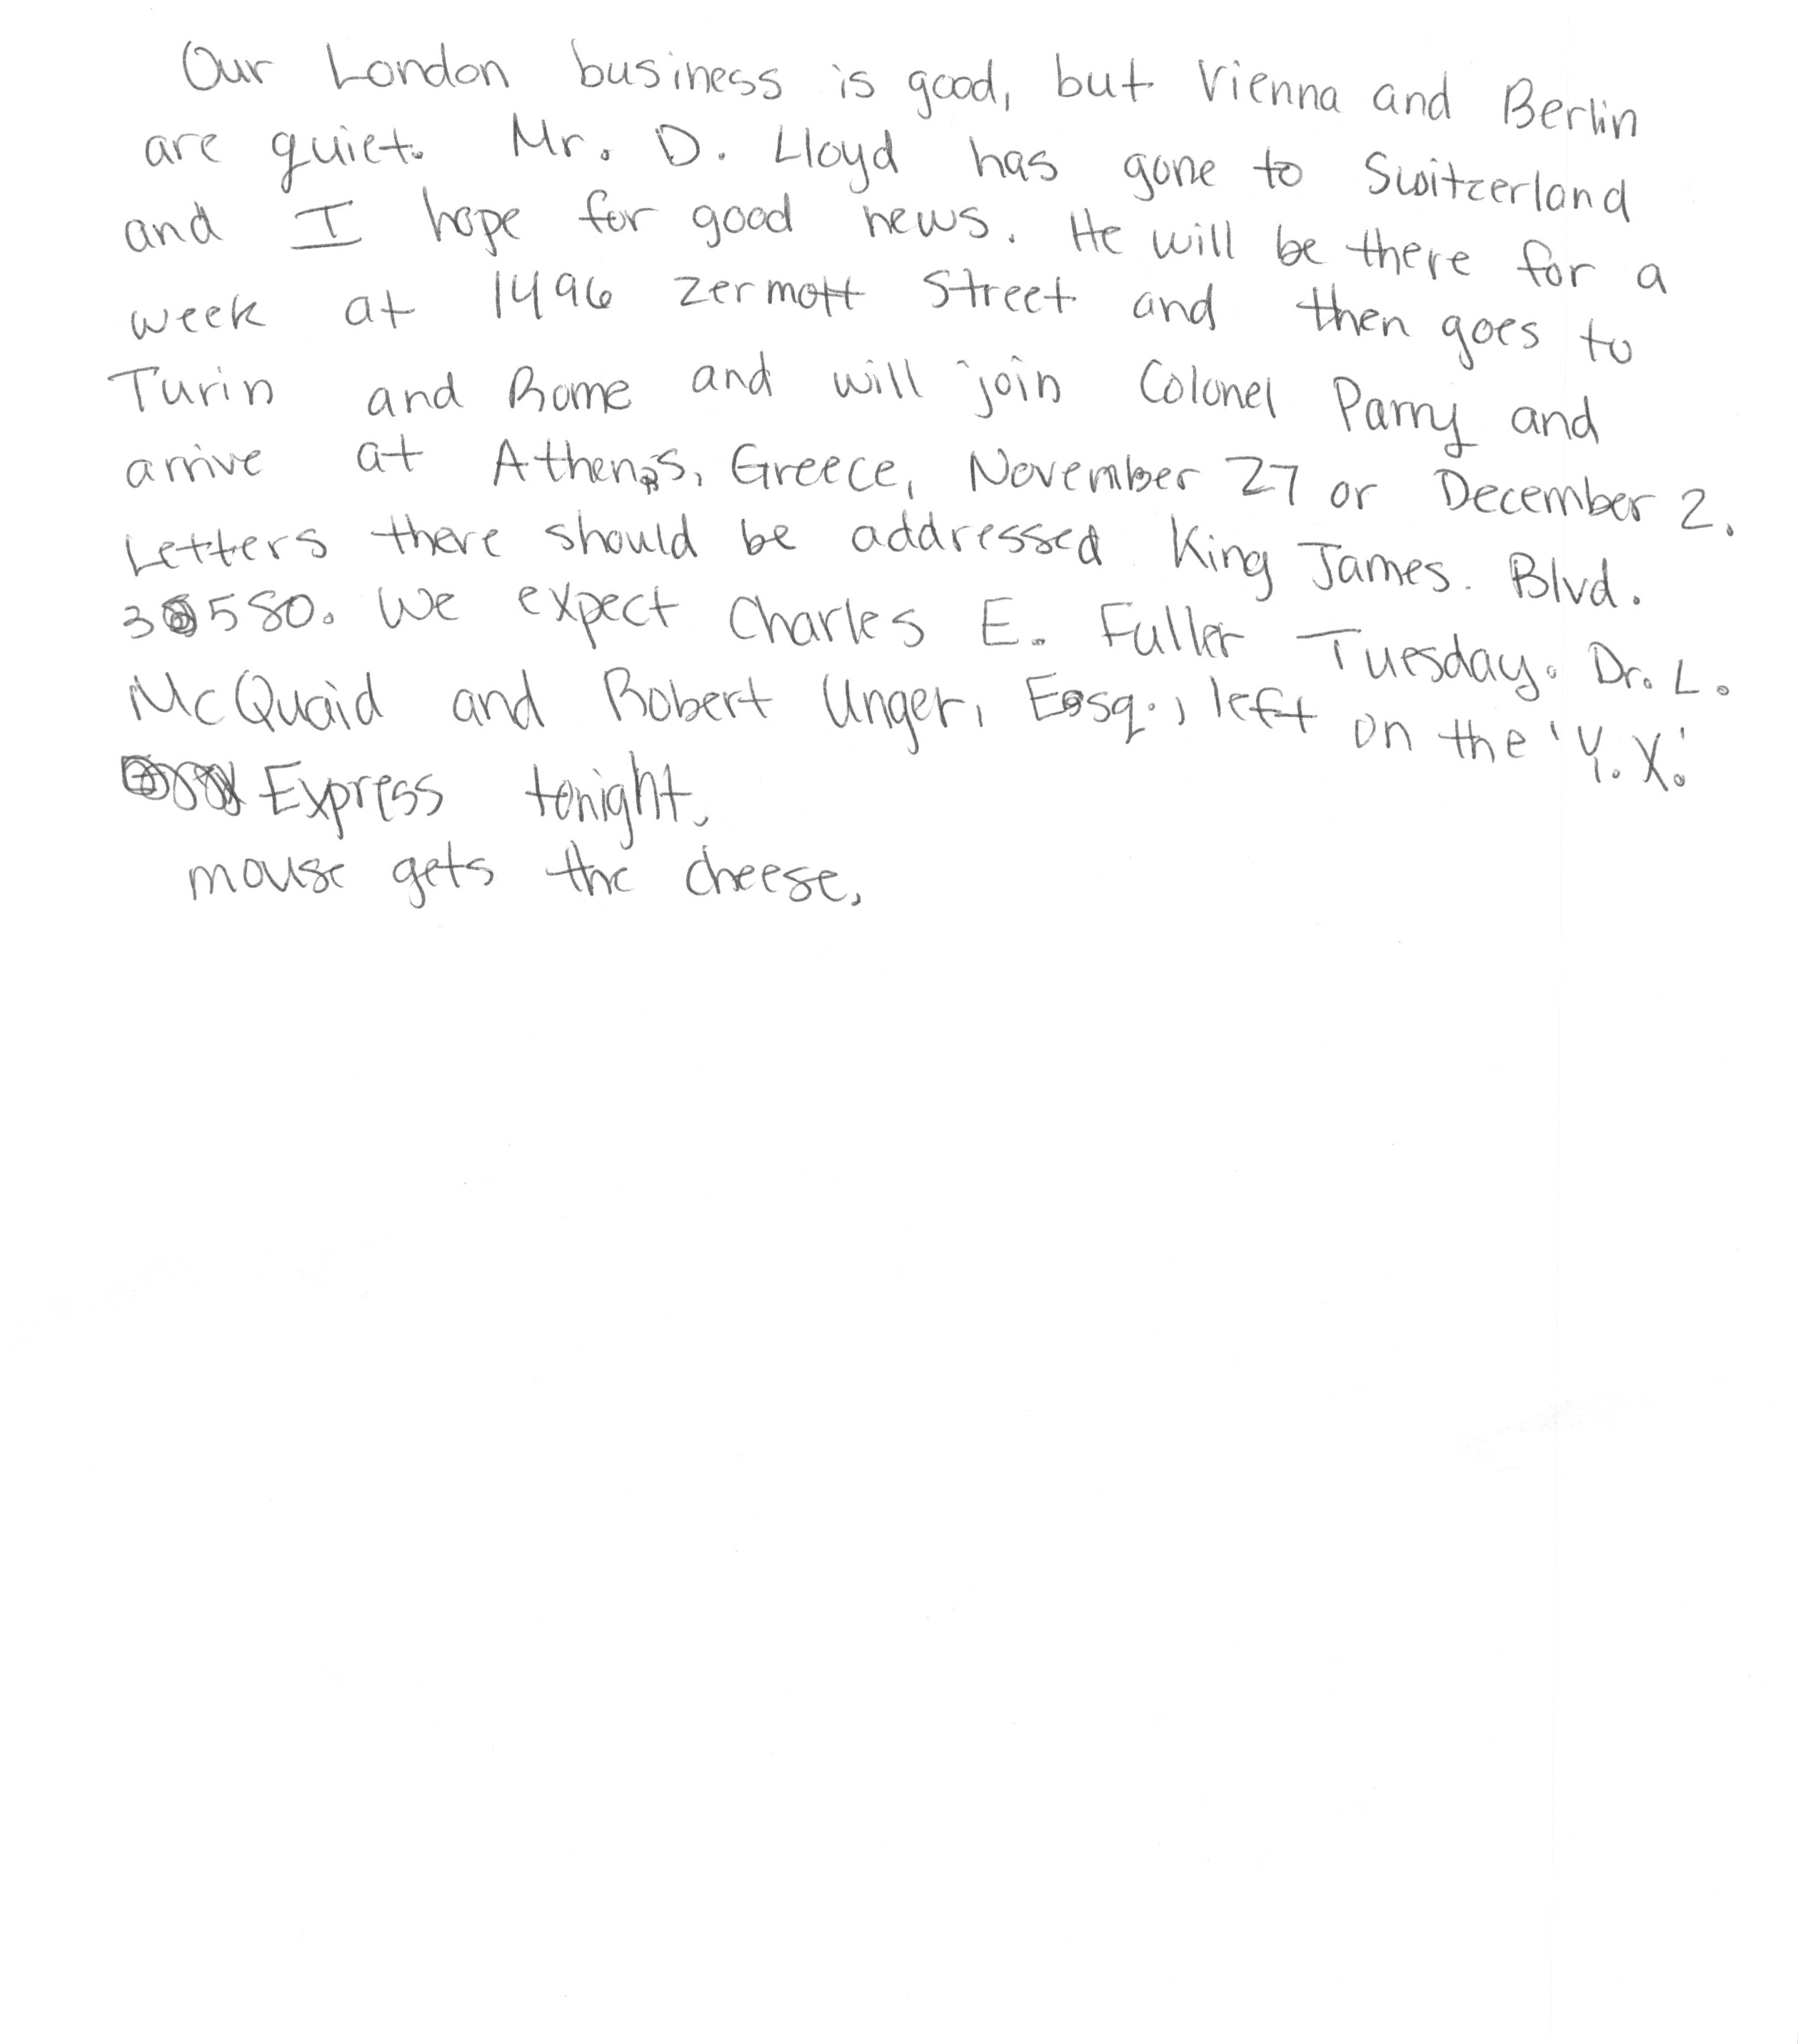 Our London business is good, but Vienna and Berlin
are quiet. Mr. D. Lloyd has gone to Switzerland
and I hope for good news. He will be there for a
week at 1496 Zermott Street and then goes to
Turin and Rome and will join Colonel Parry and
arrive at Athens, Greece, November 27 or December 2.
Letters there should be addressed King James. Blvd.
3580. We expect Charles E. Fuller Tuesday. Dr. L.
McQuaid and Robert Unger, Esq., left on the 'Y.X.'
Express tonight.
mouse gets the cheese.